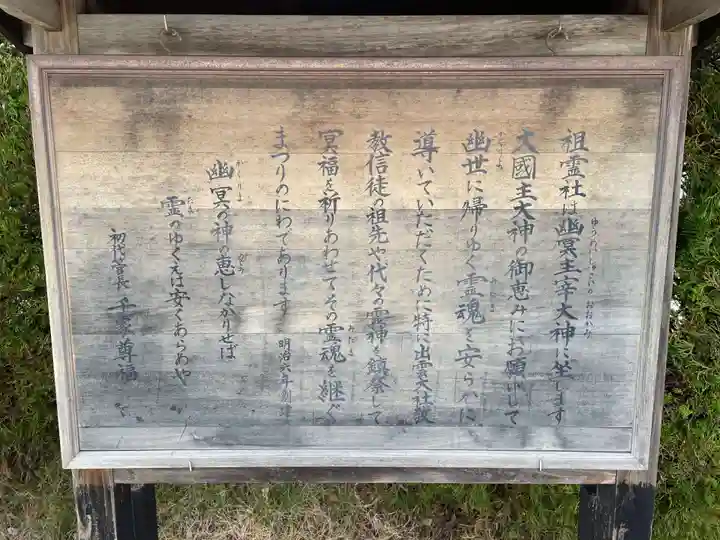 祖霊社は幽冥主宰大神に坐します
大國主大神の御恵みにお願いして
幽世に帰りゆく霊魂を安らかに
導いていただくために特に出雲大社教
教信徒の祖先や代々の霊神を鎮祭して
冥福を祈りあわせてその霊魂を継ぐ
まつりのにわであります 明治六年創建
幽冥の神の恵しなかりせば
霊のゆくえは安くあらめや
初代管長 千家尊福